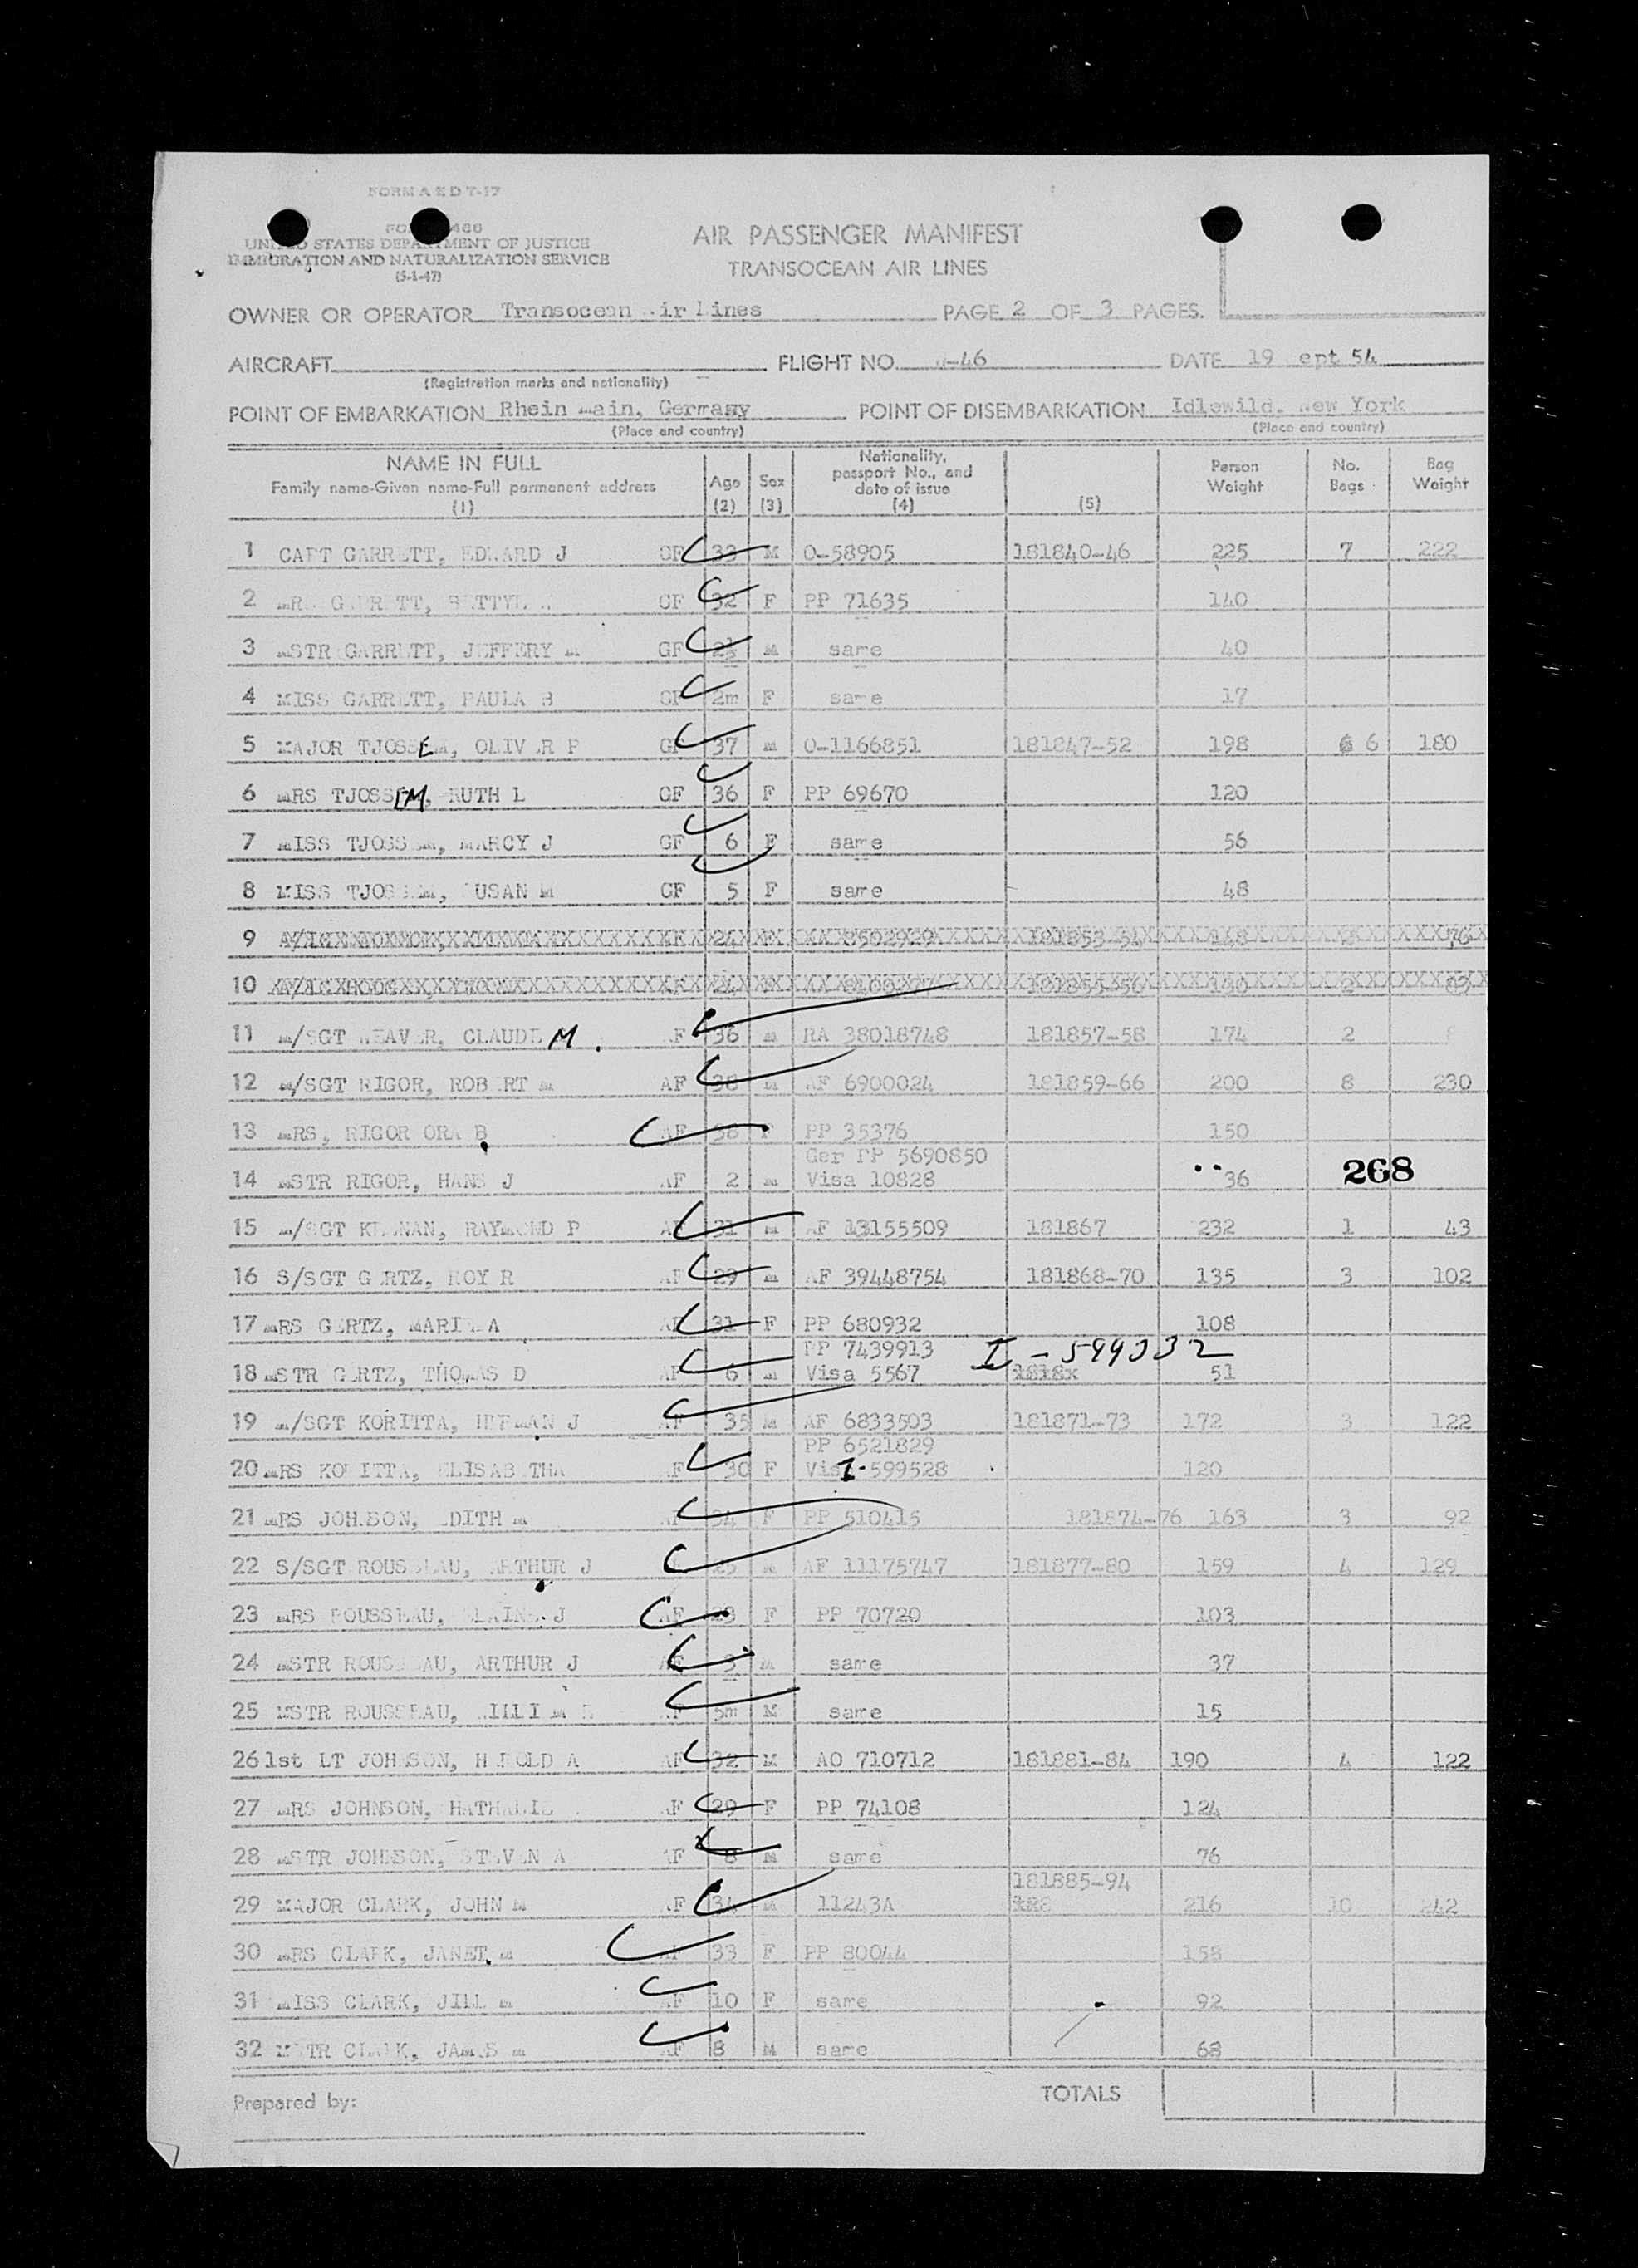 FORM A E D T-17
UNITED STATES DEPARTMENT OF JUSTICE
IMMIGRATION AND NATURALIZATION SERVICE
(5-1-47)
AIR PASSENGER MANIFEST
TRANSOCEAN AIR LINES
OWNER OR OPERATOR Transocean Air Lines PAGE 2 OF 3 PAGES.
AIRCRAFT FLIGHT NO. -46 DATE 19 ept 54
(Registration marks and nationality)
POINT OF EMBARKATION Rhein Main, Germany POINT OF DISEMBARKATION Idlewild, New York
(Place and country) (Place and country)
NAME IN FULL Family name-Given name-Full permanent address (1) Age (2) Sex (3) Nationality, passport No., and date of issue (4) (5) Person Weight No. Bags Bag Weight
1 CAPT GARRETT, EDWARD J GF 33 M O-58905 181840-46 225 7 222
2 MRS GARRETT, GF 32 F PP 71635 140
3 MSTR GARRETT, JEFFERY M GF M same 40
4 MISS GARRETT, PAULA B GF 2m F same 17
5 MAJOR TJOSSEM, OLIVER P GF 37 M O-1166851 181847-52 198 6 6 180
6 MRS TJOSSEM, RUTH L GF 36 F PP 69670 120
7 MISS TJOSSEM, MARCY J GF 6 F same 56
8 MISS TJOSSEM, SUSAN M GF 5 F same 48
9
10
11 M/SGT WEAVER, CLAUDE M. AF 36 M RA 38018748 181857-58 174 2 8
12 M/SGT RIGOR, ROBERT M AF 38 M AF 6900024 181859-66 200 8 230
13 MRS, RIGOR ORA B AF 38 F PP 35376 150
Ger PP 5690850
14 MSTR RIGOR, HANS J AF 2 M Visa 10828 36
268
15 M/SGT KEENAN, RAYMOND P AF 31 M AF 13155509 181867 232 1 43
16 S/SGT GERTZ, ROY R AF 29 M AF 39448754 181868-70 135 3 102
17 MRS GERTZ, MARIE A AF 31 F PP 680932 108
PP 7439913 I-599332
18 MSTR GERTZ, THOMAS D AF 6 M Visa 5567 1818x 51
19 M/SGT KORITTA, HERMAN J AF 35 M AF 6833503 181871-73 172 3 122
PP 6521829
20 MRS KORITTA, ELISABETHA AF 30 F Vis I-599528 120
21 MRS JOHNSON, EDITH M AF 34 F PP 510415 181874-76 163 3 92
22 S/SGT ROUSSEAU, ARTHUR J AF 25 M AF 11175747 181877-80 159 4 129
23 MRS ROUSSEAU, ELAINE J AF 23 F PP 70720 103
24 MSTR ROUSSEAU, ARTHUR J AF 3 M same 37
25 MSTR ROUSSEAU, WILLIAM AF 5m M same 15
26 1st LT JOHNSON, HAROLD A AF 32 M AO 710712 181881-84 190 4 122
27 MRS JOHNSON, NATHALIE AF 29 F PP 74108 124
28 MSTR JOHNSON, STEVEN A AF 8 M same 76
181885-94
29 MAJOR CLARK, JOHN M AF 34 M 11243A 216 10 242
30 MRS CLARK, JANET M AF 33 F PP 80044 158
31 MISS CLARK, JILL M AF 10 F same 92
32 MSTR CLARK, JAMES M AF 8 M same 68
Prepared by: TOTALS